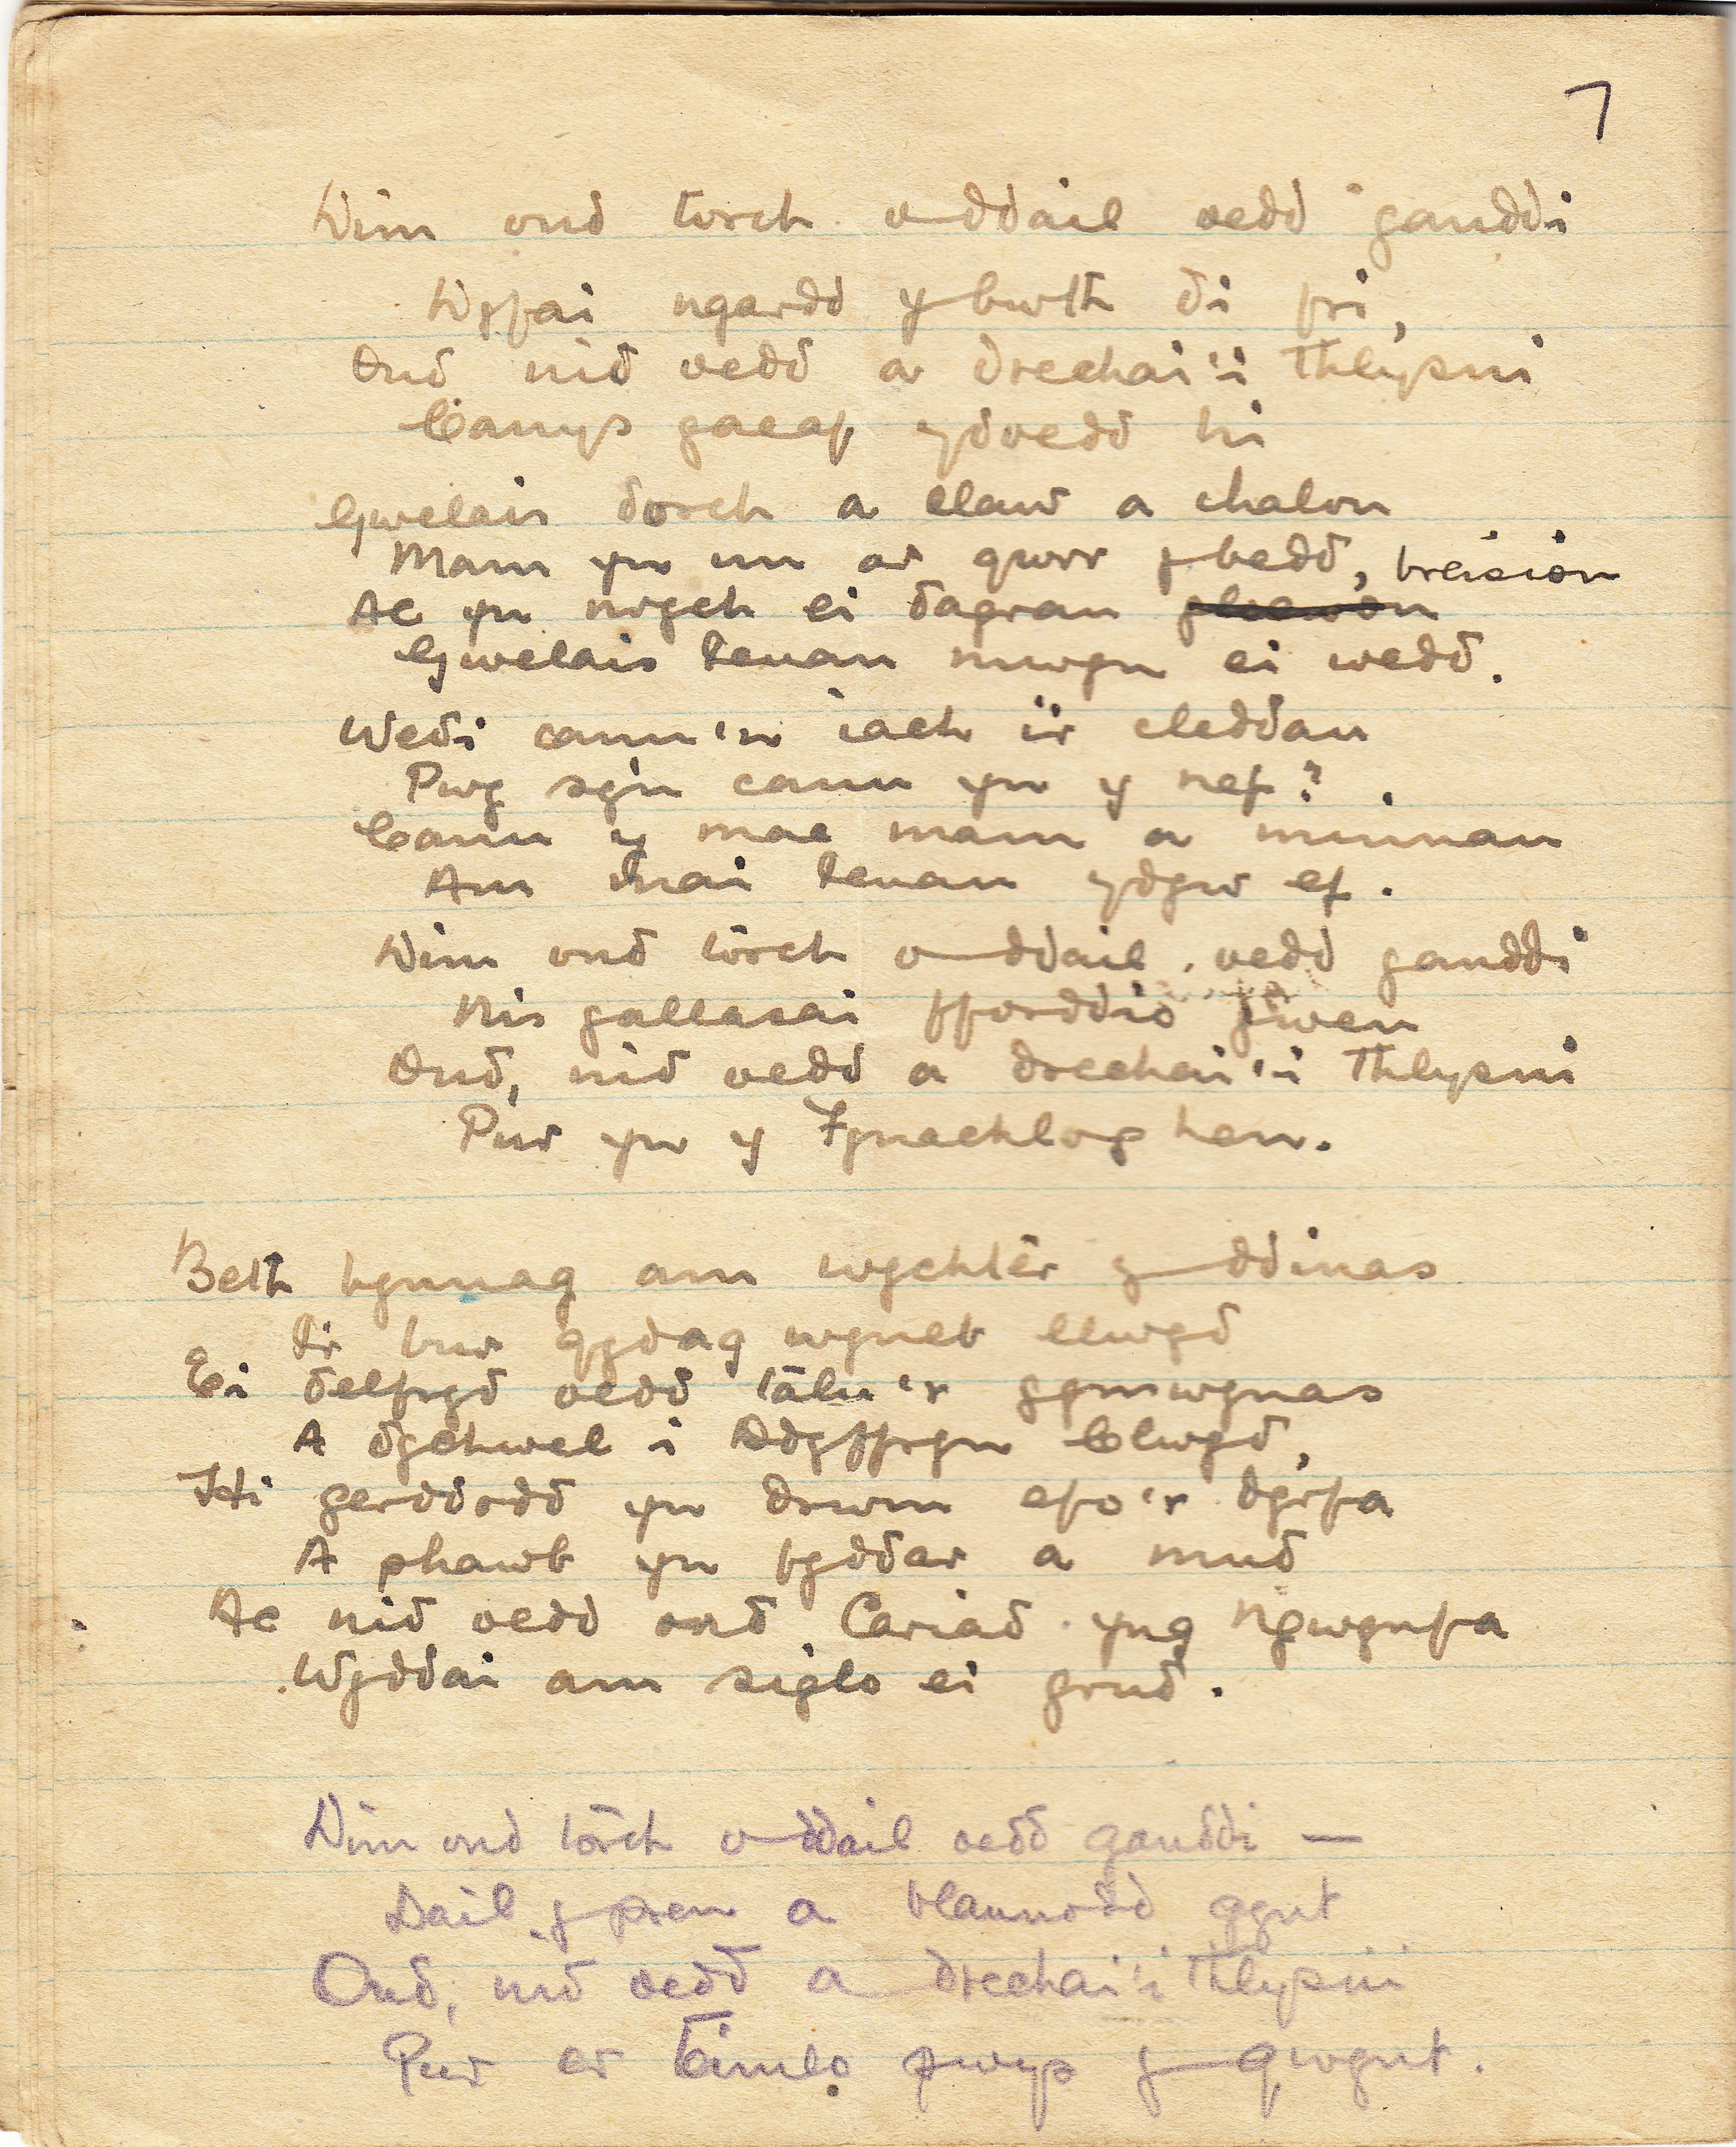 7
Dim ond torch o ddail oedd ganddi
Dyfai ngardd y bwth di fri,
Ond nid oedd a drechai'i thlysni
Canys gaeaf ydoedd hi
Gwelais dorch a llaw a chalon
Mam yn un ar gwrr y bedd,
breision
Ac yn nrych ei dagrau
Gwelais Ieuan mwyn ei wedd.
Wedi canu'n iach i'r cleddau
Pwy sy'n canu yn y nef?
Canu y mae mam a minnau
Am mai Ieuan ydyw ef.
Dim ond tôrch o ddail oedd ganddi
Nis gallasai fforddio gwen
Ond, nid oedd a drechai'i thlysni
Pur yn y Fynachlog hen.
Beth bynnag am wychtêr y ddinas
I'r bur gydag wyneb llwyd
Ei delfryd oedd tâlu'r gymwynas
A dychwel i Ddyffryn Clwyd,
Hi gerddodd yn drwm efo'r dyrfa
A phawb yn fyddar a mud
Ac nid oedd ond Cariad yng Ngwynfa
Wyddai am siglo ei grud.
Dim ond tôrch o ddail oedd ganddi —
Dail y pren a blannodd gynt
Ond, nid oedd a drechai'i thlysni
Pur er teimlo pwys y gwynt.